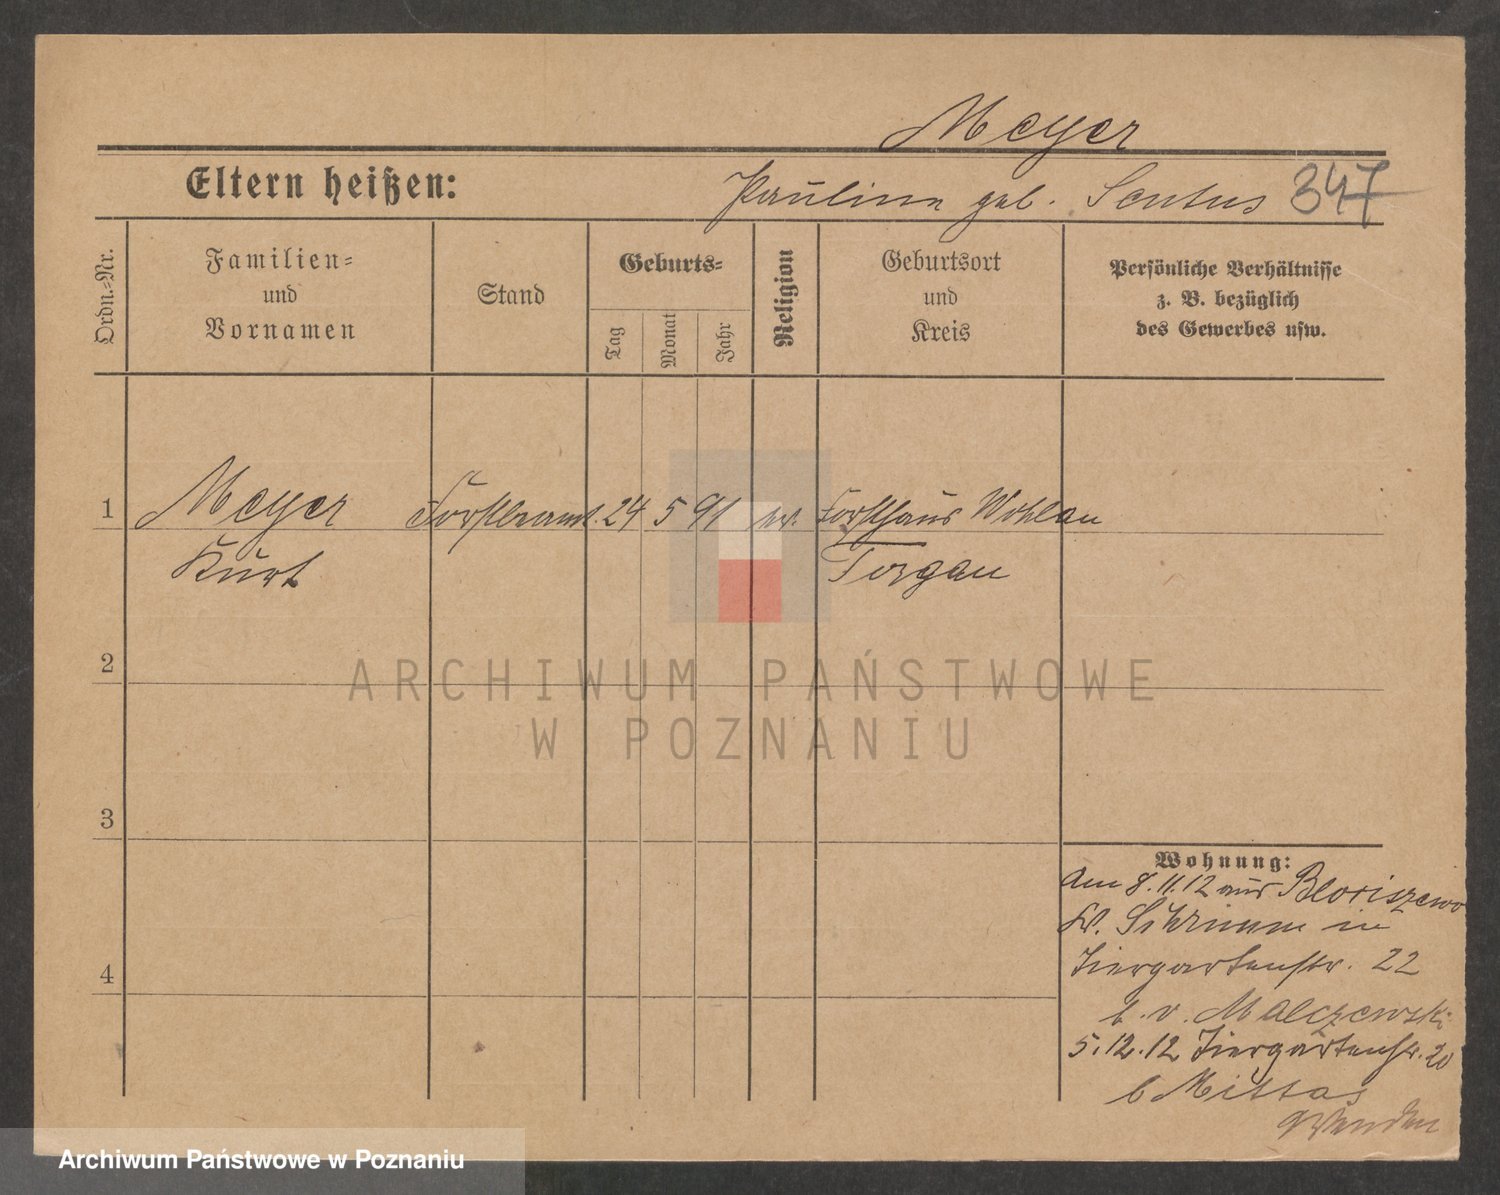 Meyer
Eltern heißen: Pauline geb. Sentus 347
Ordn.=Nr.
Familien=
und
Vornamen
Stand
Geburts=
Tag
Monat
Jahr
Religion
Geburtsort
und
Kreis
Persönliche Verhältnisse
z. B. bezüglich
des Gewerbes usw.
1 Meyer 24 5 91 ev. Forsthaus Wohlau
Kurt Torgau
2
ARCHIWUM PAŃSTWOWE
W POZNANIU
3
Wohnung:
Am 8.11.12 aus Blociszewo
Kr. Schrimm in
Tiergartenstr. 22
b. v. Malczewski
5.12.12 Tiergartenstr. 20
4
b Mittas
Wenden
Archiwum Państwowe w Poznaniu